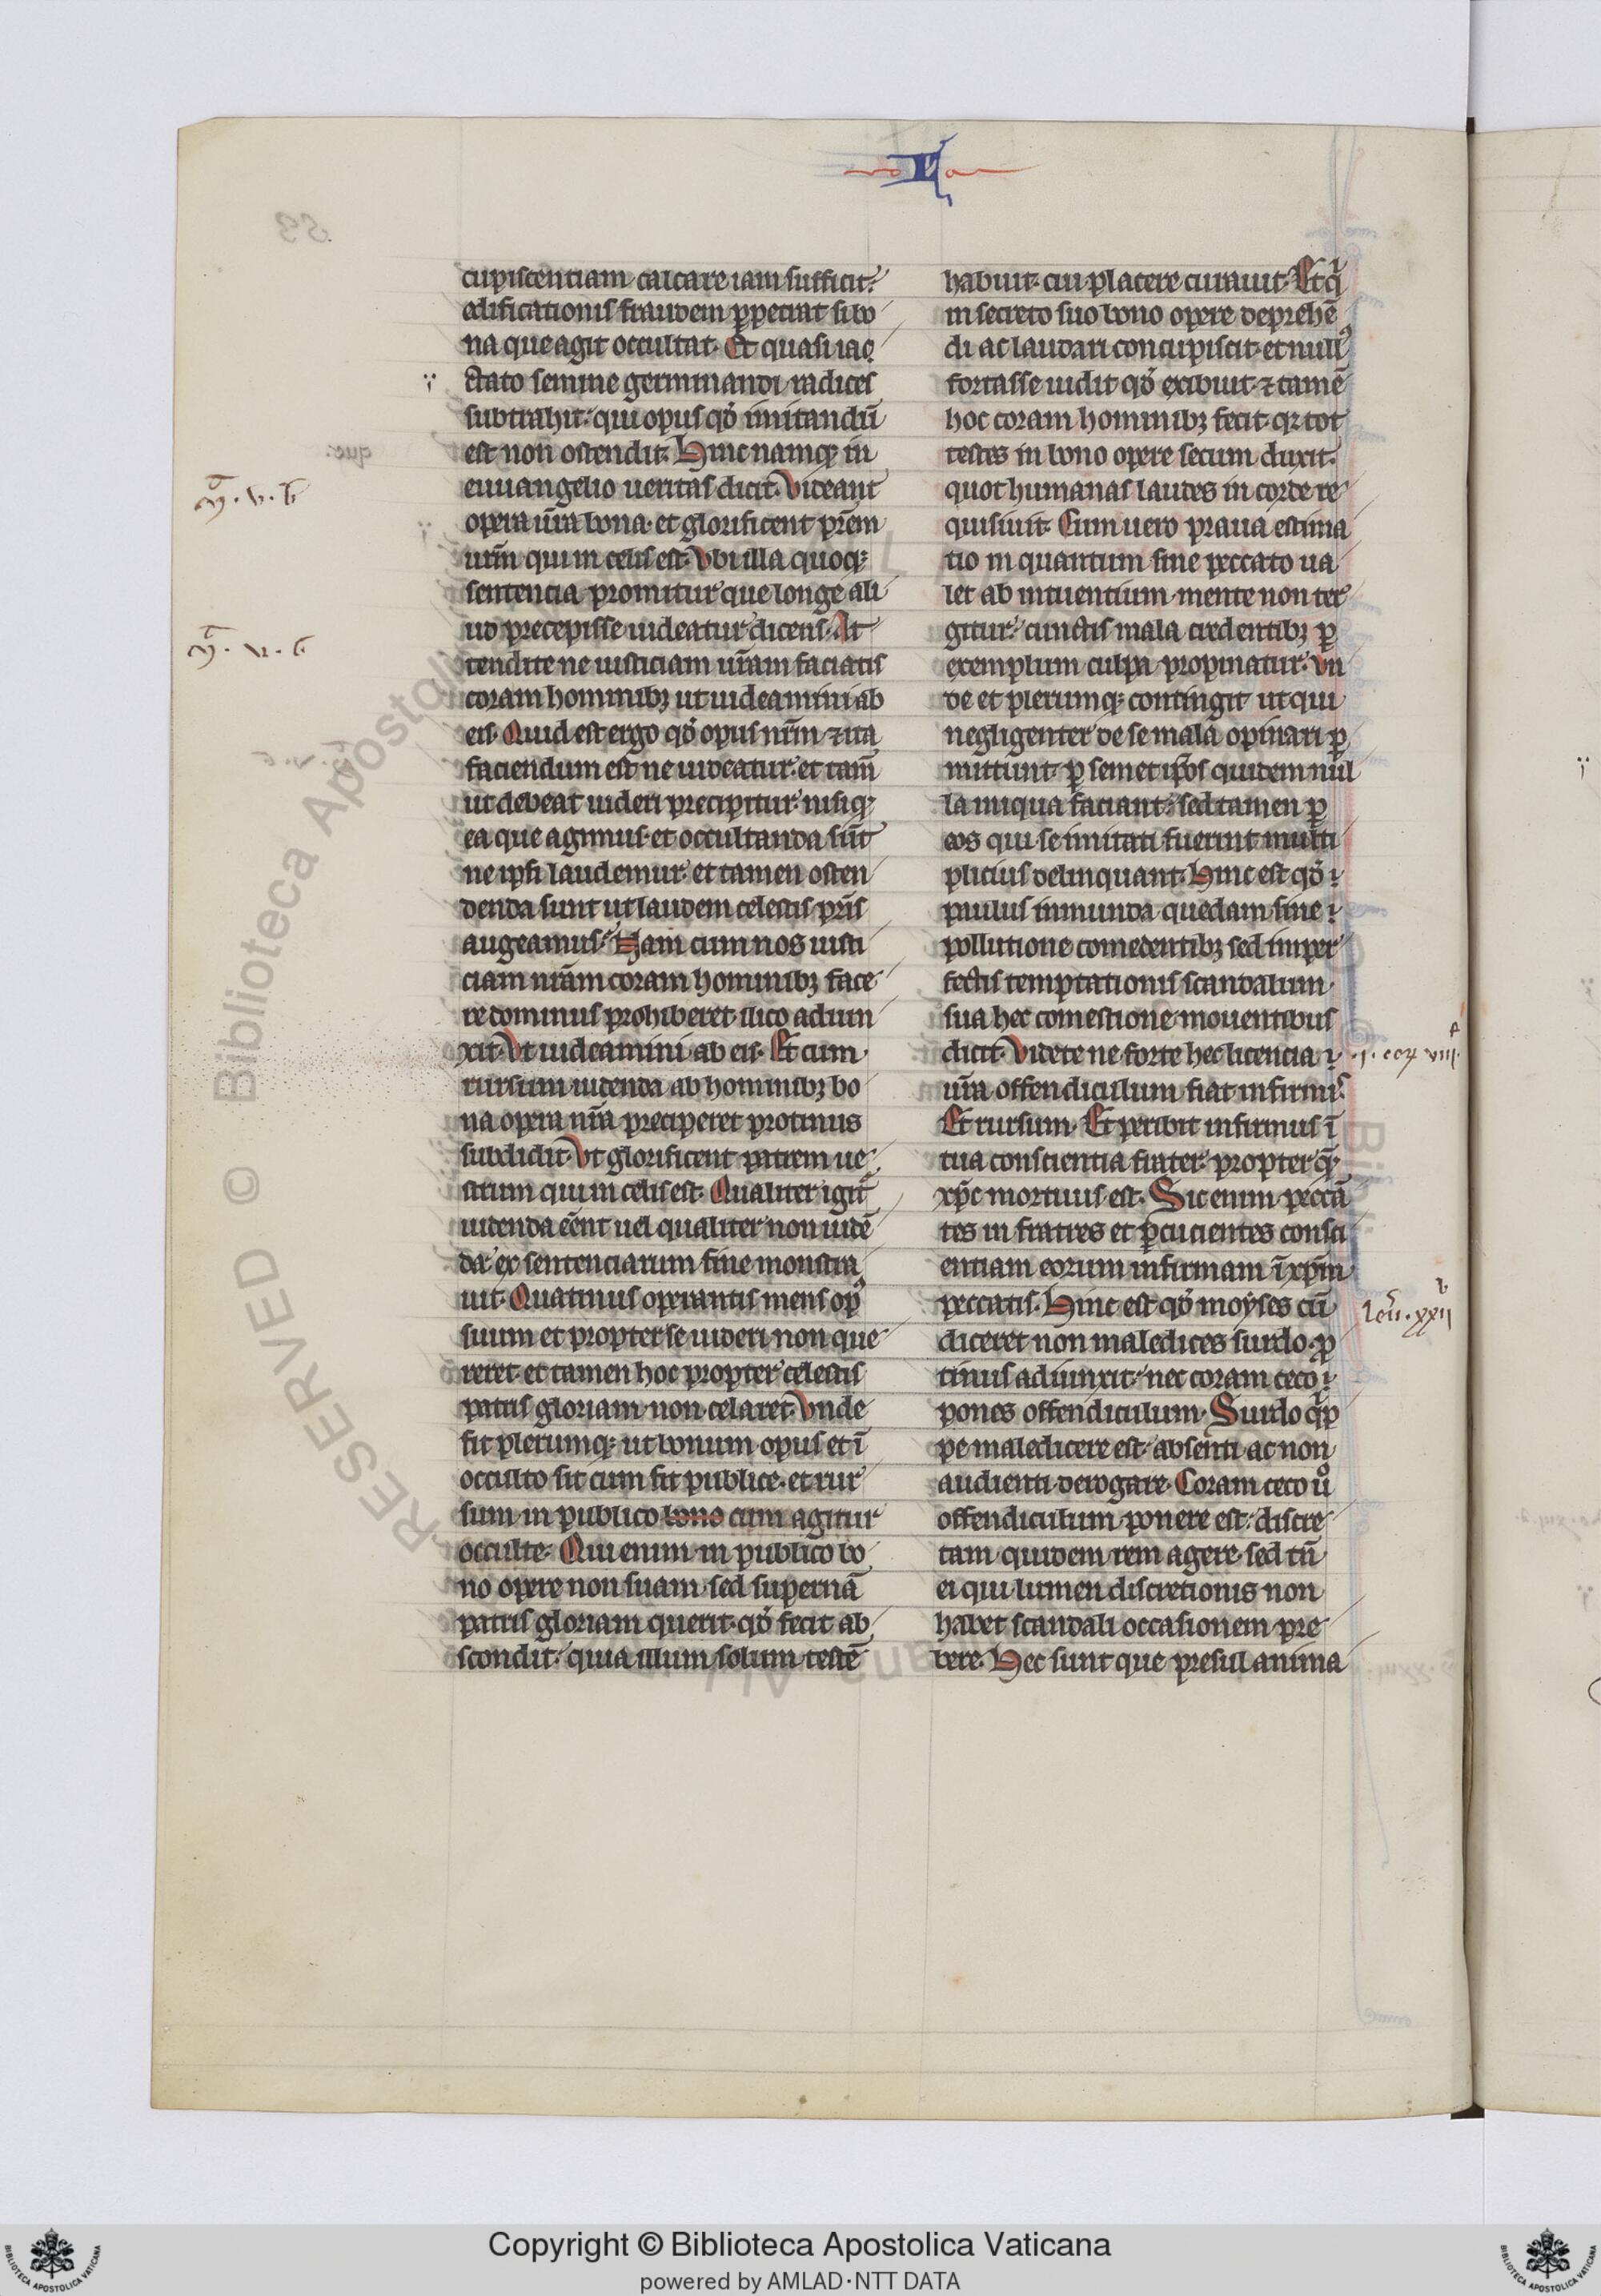 cupiscentiam calcare iam sufficit.
edificationis fraudem ꝑpetrat si bo
na que agit occultat. Et quasi iac
tato semine germinandi radices
subtrahit. qui opus qđ imitandū
est non ostendit. Hinc namqꝫ in
euuangelio ueritas dicit. Videant
opera ur̄a bona. et glorificent pr̄em
urm̄ qui in celis est. Vbi illa quoqꝫ
sentencia promitur que longe ali
ud precepisse uideatur dicens. At
tendite ne iusticiam ur̄am faciatis
coram hominibꝫ ut uideamini ab
eis. Quid est ergo qđ opus nrm̄ ⁊ ita
faciendum est ne uideatur. et tam̄
ut debeat uideri precipitur. nisi qꝫ
ea que agimus. et occultanda sūt
ne ipsi laudemur. et tamen osten
denda sunt ut laudem celestis pr̄is
augeamus. Nam cum nos iusti
ciam nr̄am coram hominibꝫ face
re dominus prohiberet. ilico adiun
xit. Vt uideamini ab eis. Et cum
rursum uidenda ab hominibꝫ bo
na opera nr̄a preciperet protinus
subdidit. Vt glorificent patrem ue
strum qui in celis est. Qualiter igit̄
uidenda eēnt uel qualiter non uidē
da ex sentenciarum fine monstra
uit. Quatinus operantis mens opꝰ
suum et propter se uideri non que
reret. et tamen hoc propter celestis
patris gloriam non celaret. Vnde
fit plerumqꝫ ut bonum opus et ī
occulto sit cum fit publice. et rur
sum in publico bono cum agitur
occulte. Qui enim in publico bo
no opere non suam sed supernā
patris gloriam querit. qđ fecit ab
scondit. quia illum solum testē
habuit. cui placere curauit. Et qͥ
in secreto suo bono opere deprehē
di ac laudari concupiscit. et nullꝰ
fortasse uidit qđ exibuit. ⁊ tamē
hoc coram hominibꝫ fecit. qꝛ tot
testes in bono opere secum duxit.
quot humanas laudes in corde re
quisiuit. Cum uero praua estima
tio in quantum sine peccato ua
let ab intuentium mente non ter
gitur. cunctis mala credentibꝫ ꝑ
exemplum culpa propinatur. Vn
de et plerumqꝫ contingit ut qui
negligenter de se mala opinari ꝑ
mittunt. ꝑ semet ip̄os quidem nul
la iniqua faciant. sed tamen ꝑ
eos qui se imitati fuerint multi
plicius delinquant. Hinc est qđ
paulus inmunda quedam sine
pollutione comedentibꝫ sed inper
fectis temptationis scandalum
sua hec comestione mouentibus
dicit. Videte ne forte hec licencia
ur̄a offendiculum fiat infirmis.
Et rursum. Et peribit infirmus ī
tua conscientia frater. propter q̄
xp̄c mortuus est. Sic enim peccā
tes in fratres et ꝑcucientes consci
entiam eorum infirmam ī xpm̄
peccatis. Hinc est qđ moyses cū
diceret non maledices surdo. ꝓ
tinus adiunxit. nec coram ceco
pones offendiculum. Surdo qͥp
pe maledicere est. absenti ac non
audienti derogare. Coram ceco uͦ
offendiculum ponere est. discre
tam quidem rem agere. sed tn̄
ei qui lumen discretionis non
habet scandali occasionem pre
bere. Hec sunt que presul anima
Copyright © Biblioteca Apostolica Vaticana
powered by AMLAD·NTT DATA